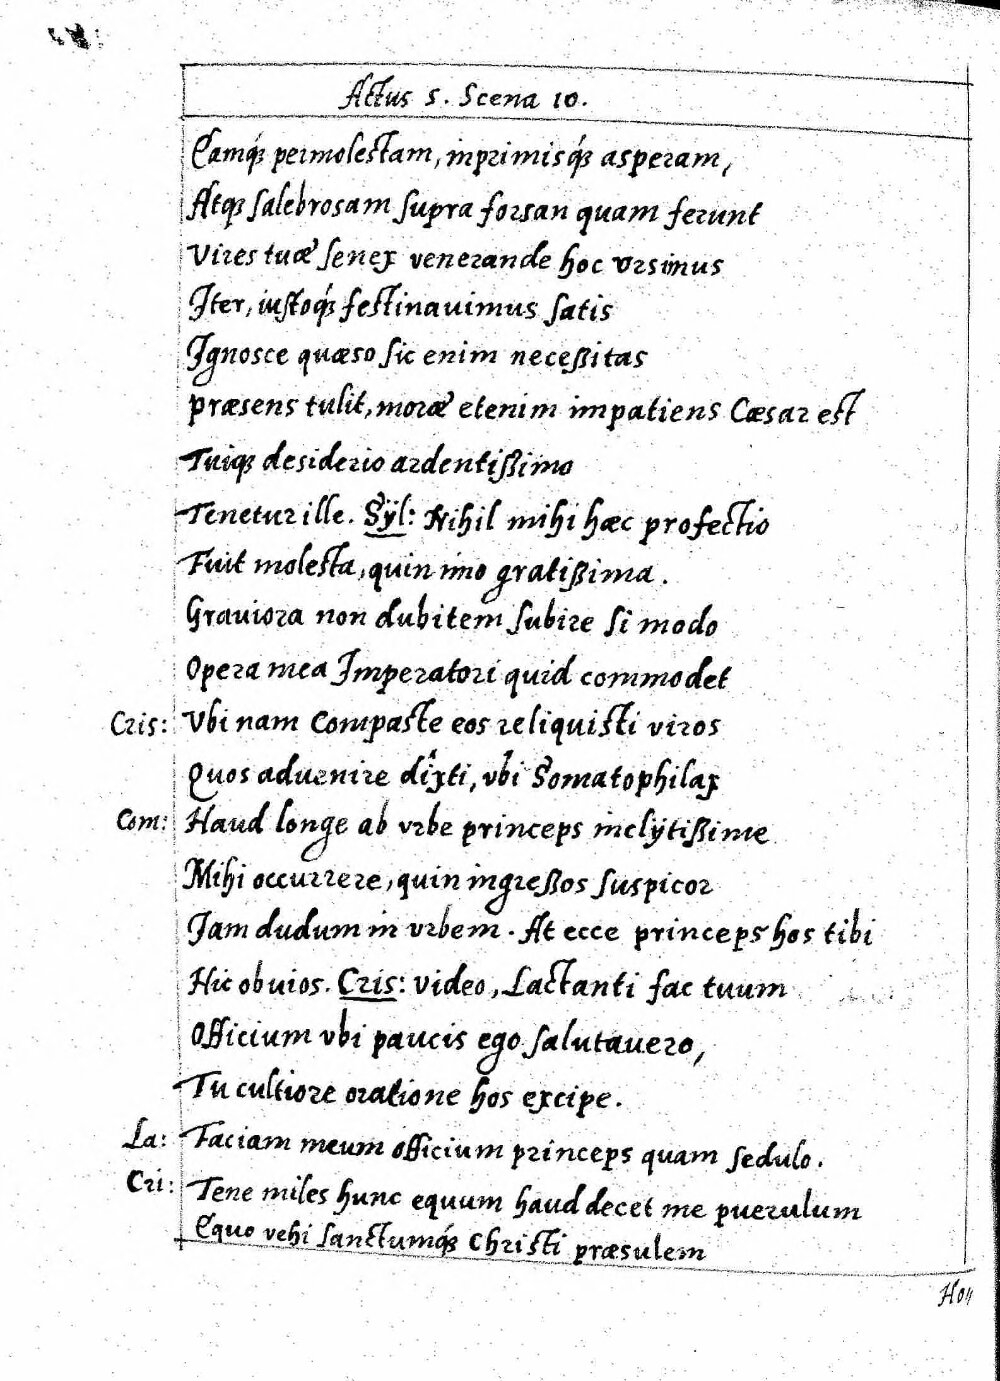 Actus 5. Scena 10.
Eamq́ꝫ permolestam, inprimisq́ꝫ asperam,
Atqꝫ salebrosam supra forsan quam ferunt
Vires tuæ senex venerande hoc vrsimus
Iter, iustoq́ꝫ festinauimus satis
Ignosce quæso sic enim neceßitas
præsens tulit, moræ etenim impatiens Cæsar est
Tuiqꝫ desiderio ardentißimo
Tenetur ille. Sÿl: Nihil mihi hæc profectio
Fuit molesta, quin imo gratißima.
Graviora non dubitem subire si modo
Opera mea Imperatori quid commodet
Cris: Vbi nam Compaste eos reliquisti viros
Quos aduenire dixti, vbi Somatophilax
Com: Haud longe ab vrbe princeps inclÿtißime
Mihi occurrere, quin ingreßos suspicor
Iam dudum in vrbem. At ecce princeps hos tibi
Hic obuios. Cris: video, Lactanti fac tuum
Officium vbi paucis ego salutauero,
Tu cultiore oratione hos excipe.
La: Faciam meum officium princeps quam sedulo.
Cri: Tene miles hunc equum haud decet me puerulum
Equo vehi sanctumq́ꝫ Christi præsulem